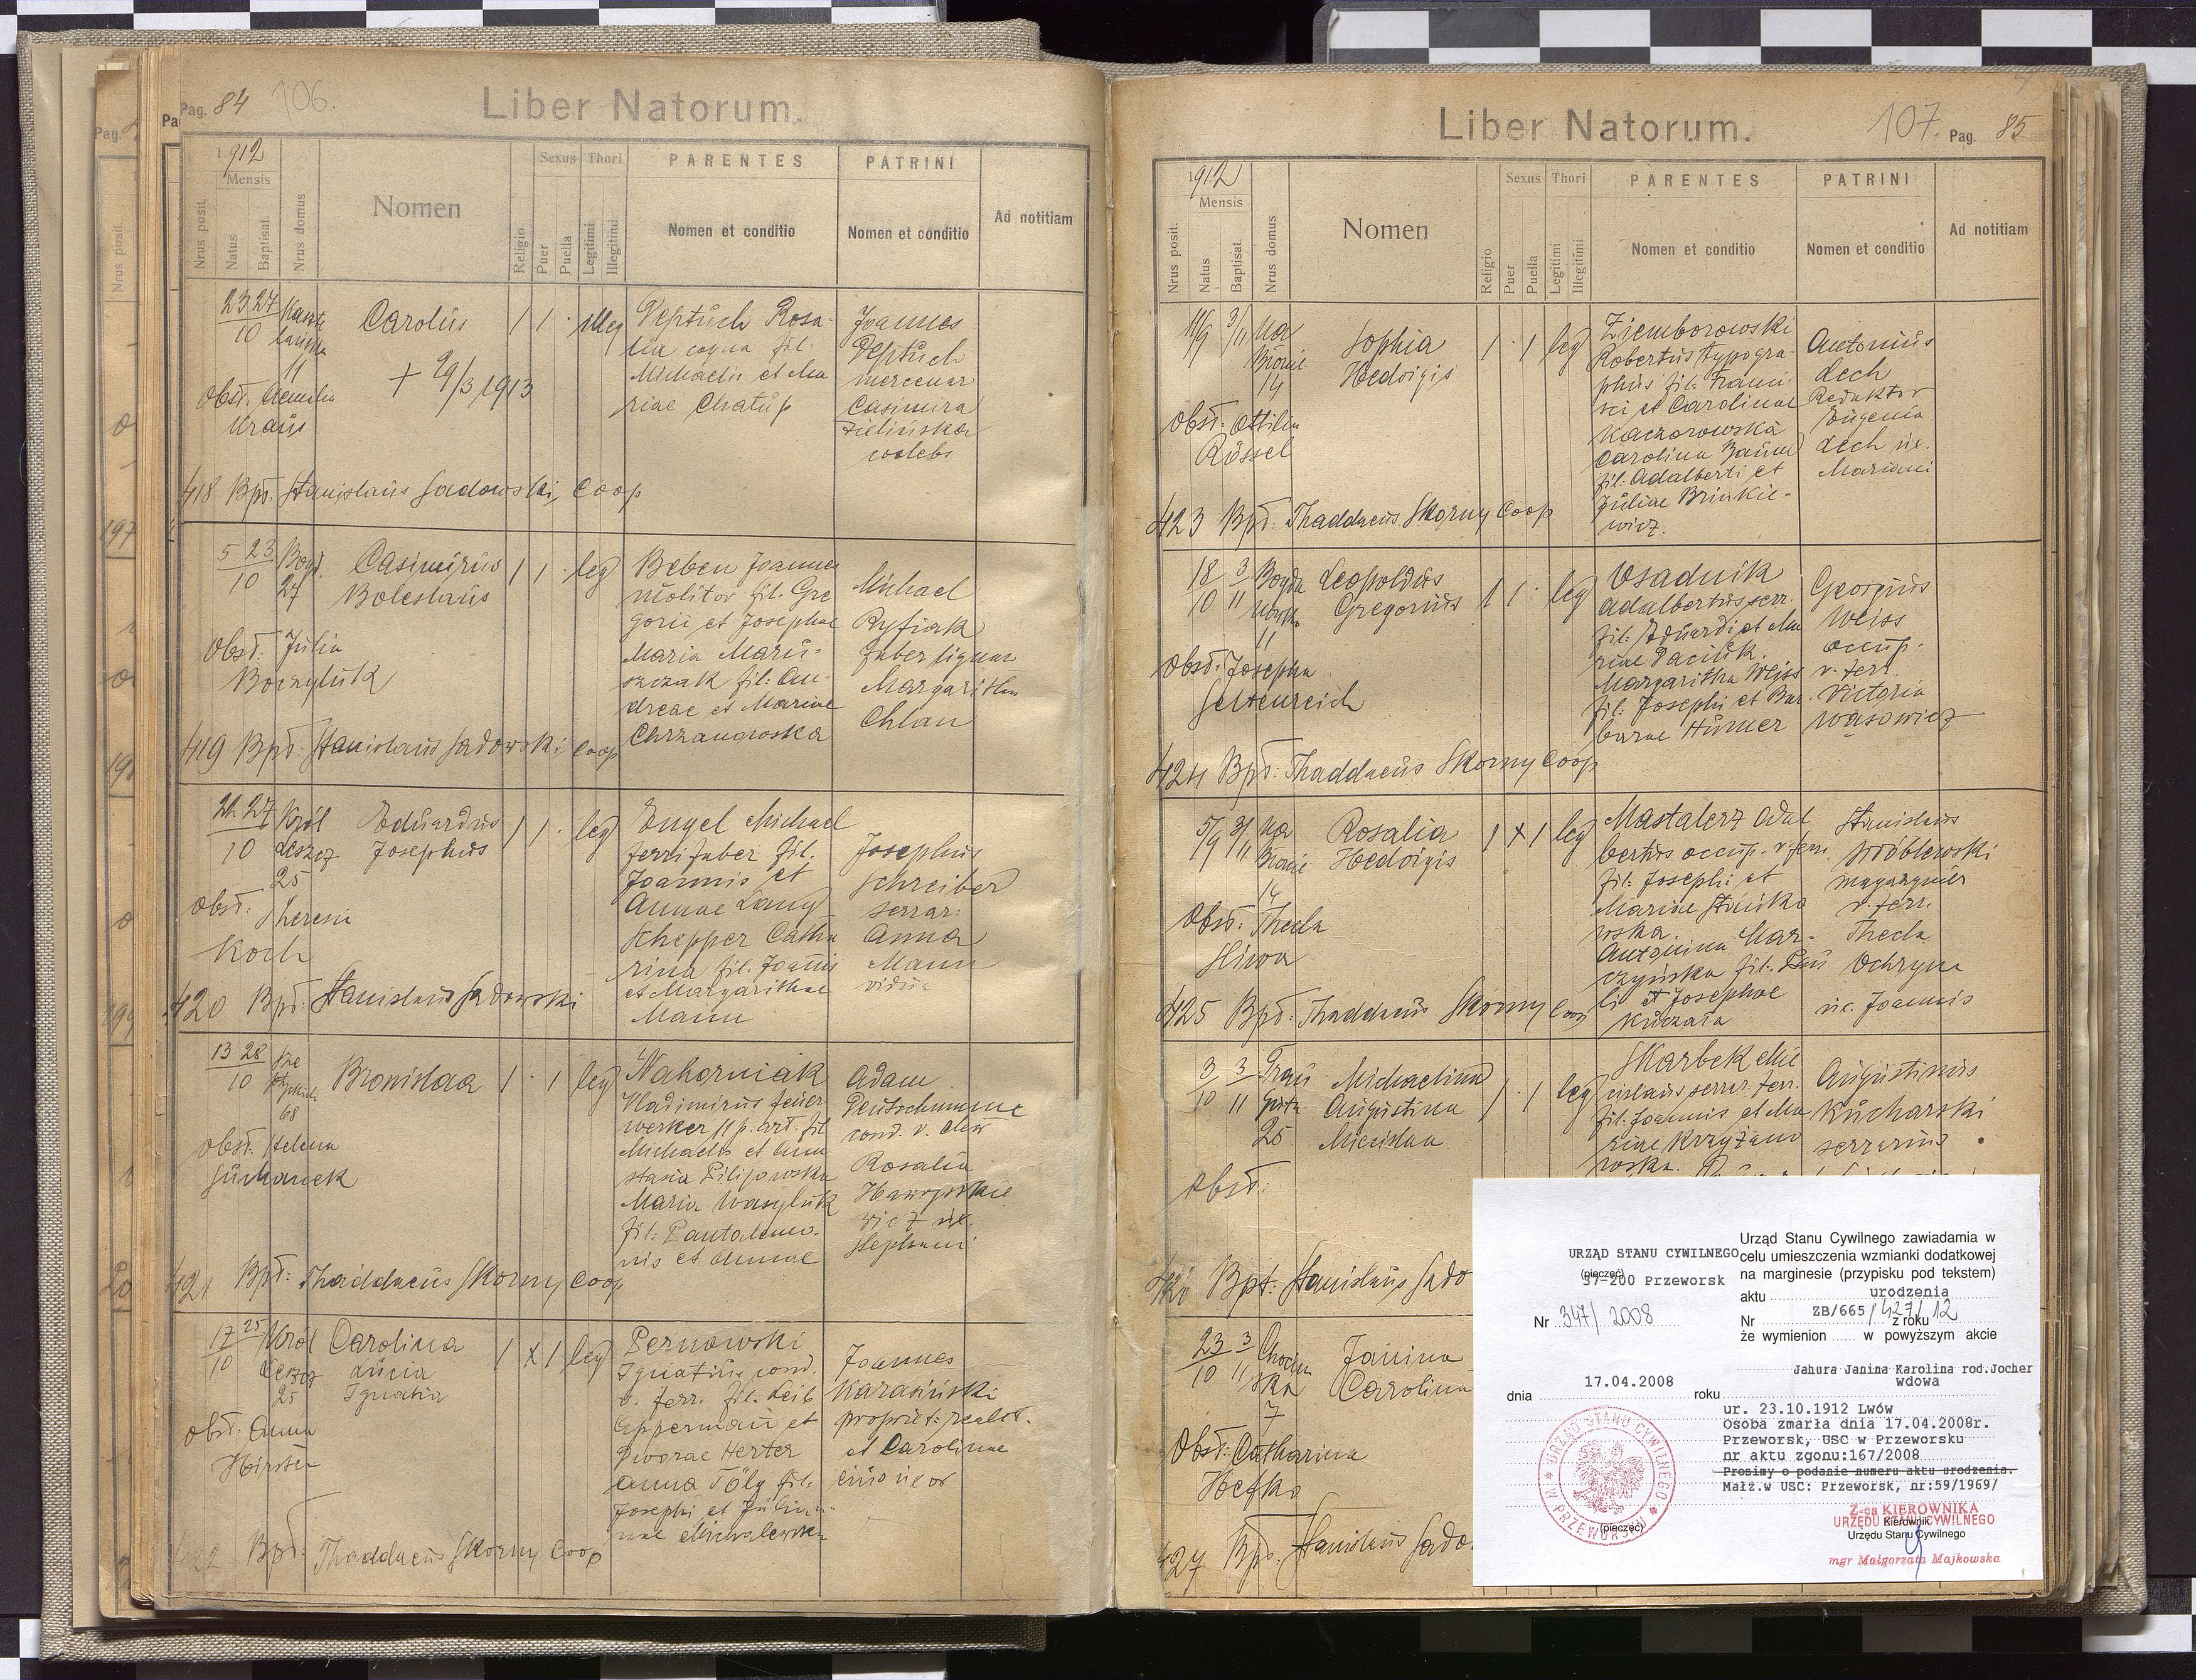 Pag. 84 106.
Liber Natorum.
1912
Mensis
Nrus posit.
Natus
Baptisat.
Nrus domus
Nomen
Religio
Sexus
Puer
Puella
Thori
Legitimi
Illegitimi
PARENTES
Nomen et conditio
PATRINI
Nomen et conditio
Ad notitiam
23 27
10
11
Carolus
+ 29/3 1913
1 1 · illeg
Obst. Aemilia
Kraus
Peptuch Rosa-
lia coqua fil.
Michaelis et Ma
riae Chatup
Joannes
Peptuch
mercenar
Casimira
Zielińska
coelebs
418 Bpt. Stanislaus Sadowski, Coop
5 23
10
Bogd.
27
Casimirus
Boleslaus
1 1 · leg
Obst. Julia
Boczyluk
Beben Joannes
molitor fil. Gre
gorii et Josephae
Maria Maru-
szczak fil. An-
dreae et Mariae
Chrzanowska
Michael
Ryfiak
faber lignar
Margaritha
Chlan
419 Bpt. Stanislaus Sadowski coop
22 27
10
Król
Leszcz
25
Eduardus
Josephus
1 1 · leg
Obst.
Theresia
Koch
Engel Michael
ferri faber fil.
Joannis et
Annae Lang
Schepper Catha
rina fil. Joannis
et Margarithae
Mann
Josephus
Schreiber
serrar.
Anna
Mann
vidua
420 Bpt. Stanislaus Sadowski
13 28
10
68
Bronislaa
1 · 1 leg
Obst. Helena
Suchanek
Nahorniak
Vladimirus feuer
werker 11 p. art. fil
Michaelis et Ana
stasia Pilipowska
Maria Wasyluk
fil. Pantalemo-
nis et Annae
Adam
Deutschmane
cond. v. elew
Rosalia
wicz ux.
Stephani
421 Bpt. Thaddaeus Skorny Coop
17 25
10
Król
Leszcz
25
Carolina
Lucia
Ignatia
1 x 1 leg
Obst. Anna
Hirsten
Pernawski
Ignatius cond.
v. ferr. fil. Leib
Epperman et
Dworae Herter
Anna Töly fil.
Josephi et Julian-
nae Michalewska
Joannes
Karasiński
propriet. realit.
et Carolinae
eius uxor
422 Bpt. Thaddaeus Skorny Coop
Liber Natorum.
107. Pag. 85
1912
Mensis
Nrus posit.
Natus
Baptisat.
Nrus domus
Nomen
Religio
Sexus
Puer
Puella
Thori
Legitimi
Illegitimi
PARENTES
Nomen et conditio
PATRINI
Nomen et conditio
Ad notitiam
11/9 3/11
Na
Bronie
14
Sophia
Hedvigis
1 · 1 leg
Obst. Ottilia
Rössel
Ziemborowski
Robertus typogra-
phus fil. Franci
sci et Carolinae
Kaczorowska
Carolina Baum
fil. Adalberti et
Juliae Brinkie-
wicz.
Antonius
Lech
Redaktor
Eugenia
Lech ux.
Mariani
423 Bpt. Thaddaeus Skorny Coop
18 3
10 11
Bogda
nowska
11
Leopoldus
Gregorius
1 1 · leg
Obst. Josepha
Geltenreich
Osadnik
Adalbertus serr.
fil. Eduardi et Ma
riae Paciuk.
Margaritha Weiss
fil. Josephi et Bar-
barae Humer
Georgius
Weiss
occup.
v. ferr.
Victoria
Wąsowicz
424 Bpt. Thaddaeus Skorny Coop
5/9 3/11
Na
Bronie
14
Rosalia
Hedvigis
1 x 1 leg
Obst. Thecla
Sliwa
Mastalerz Adal
bertus occup. v. ferr.
fil. Josephi et
Mariae Stańko
wska.
Antonina Mar-
czyńska fil. Pau
li et Josephae
Kuczała
Stanislaus
Wróblewski
magazynier
v. ferr.
Thecla
Ochryna
ux. Joannis
425 Bpt. Thaddaeus Skorny Coop
3 3
10 11
Grau
gutta
25
Michaelina
Augustina
Miecislaa
1 · 1 leg
Obst.
Skarbek Mie
cislaus serrar. ferr.
fil. Joannis et Ma
riae Krzyżano
wska.
Augustinus
Kucharski
serrarius
426 Bpt. Stanislaus Sado
23 3
10 11
Chocim
ska
7
Janina
Carolina
Obst. Catharina
Hefko
427 Bpt. Stanislaus Sado
URZĄD STANU CYWILNEGO
(pieczęć)
37-200 Przeworsk
Nr 347/2008
Urząd Stanu Cywilnego zawiadamia w
celu umieszczenia wzmianki dodatkowej
na marginesie (przypisku pod tekstem)
aktu urodzenia
Nr ZB/665/427/ z roku 12
że wymienion w powyższym akcie
Jahura Janina Karolina rod.Jocher
wdowa
dnia 17.04.2008 roku
ur. 23.10.1912 Lwów
Osoba zmarła dnia 17.04.2008r.
Przeworsk, USC w Przeworsku
nr aktu zgonu:167/2008
Prosimy o podanie numeru aktu urodzenia.
Małż.w USC: Przeworsk, nr:59/1969/
URZĄD STANU CYWILNEGO * W PRZEWORSKU *
(pieczęć)
Z-ca KIEROWNIKA
URZĘDU STANU CYWILNEGO
Kierownik
Urzędu Stanu Cywilnego
mgr Małgorzata Majkowska